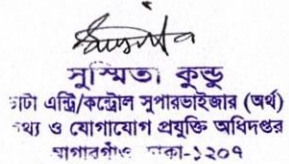 Susmita
সুস্মিতা কুন্ডু
াটা এন্ট্রি/কন্ট্রোল সুপারভাইজার (অর্থ)
থ্য ও যোগাযোগ প্রযুক্তি অধিদপ্তর
আগারগাঁও ঢাকা-১২০৭